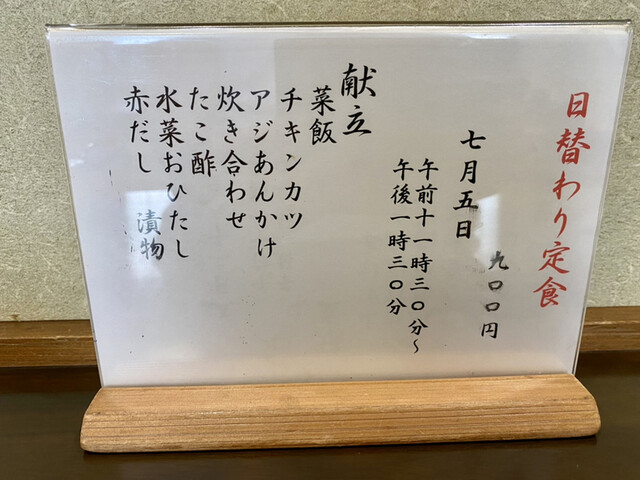 日替わり定食
九〇〇円
七月五日
午前十一時三〇分～
午後一時三〇分
献立
菜飯
チキンカツ
アジあんかけ
炊き合わせ
たこ酢
水菜おひたし
赤だし　漬物